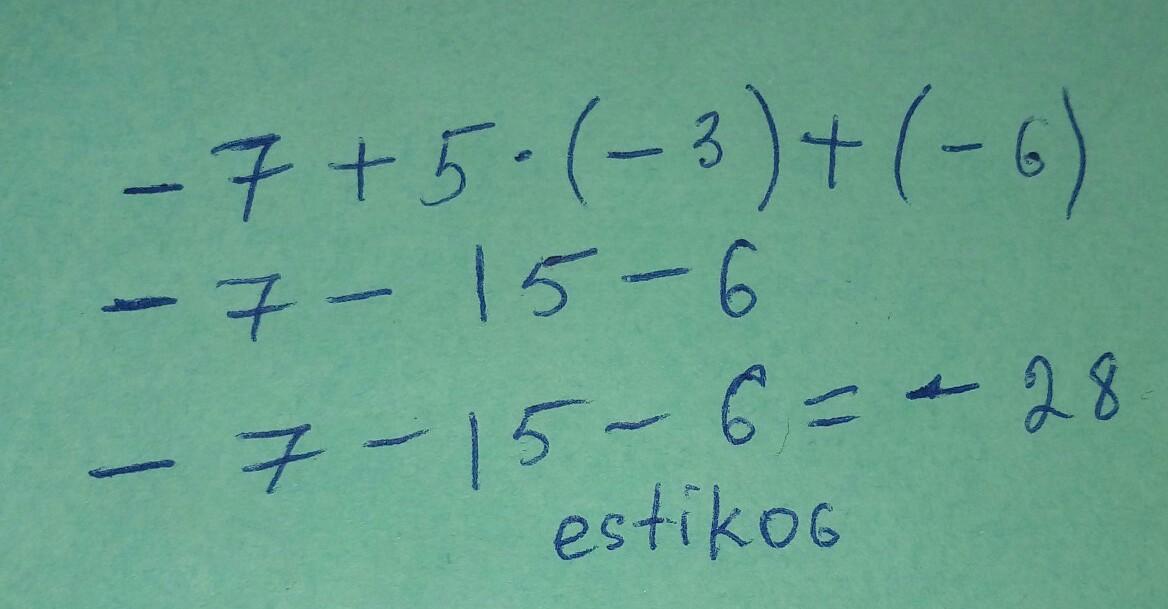 - 7 + 5 · (- 3) + (- 6)
- 7 - 15 - 6
- 7 - 15 - 6 = - 28
estiko6